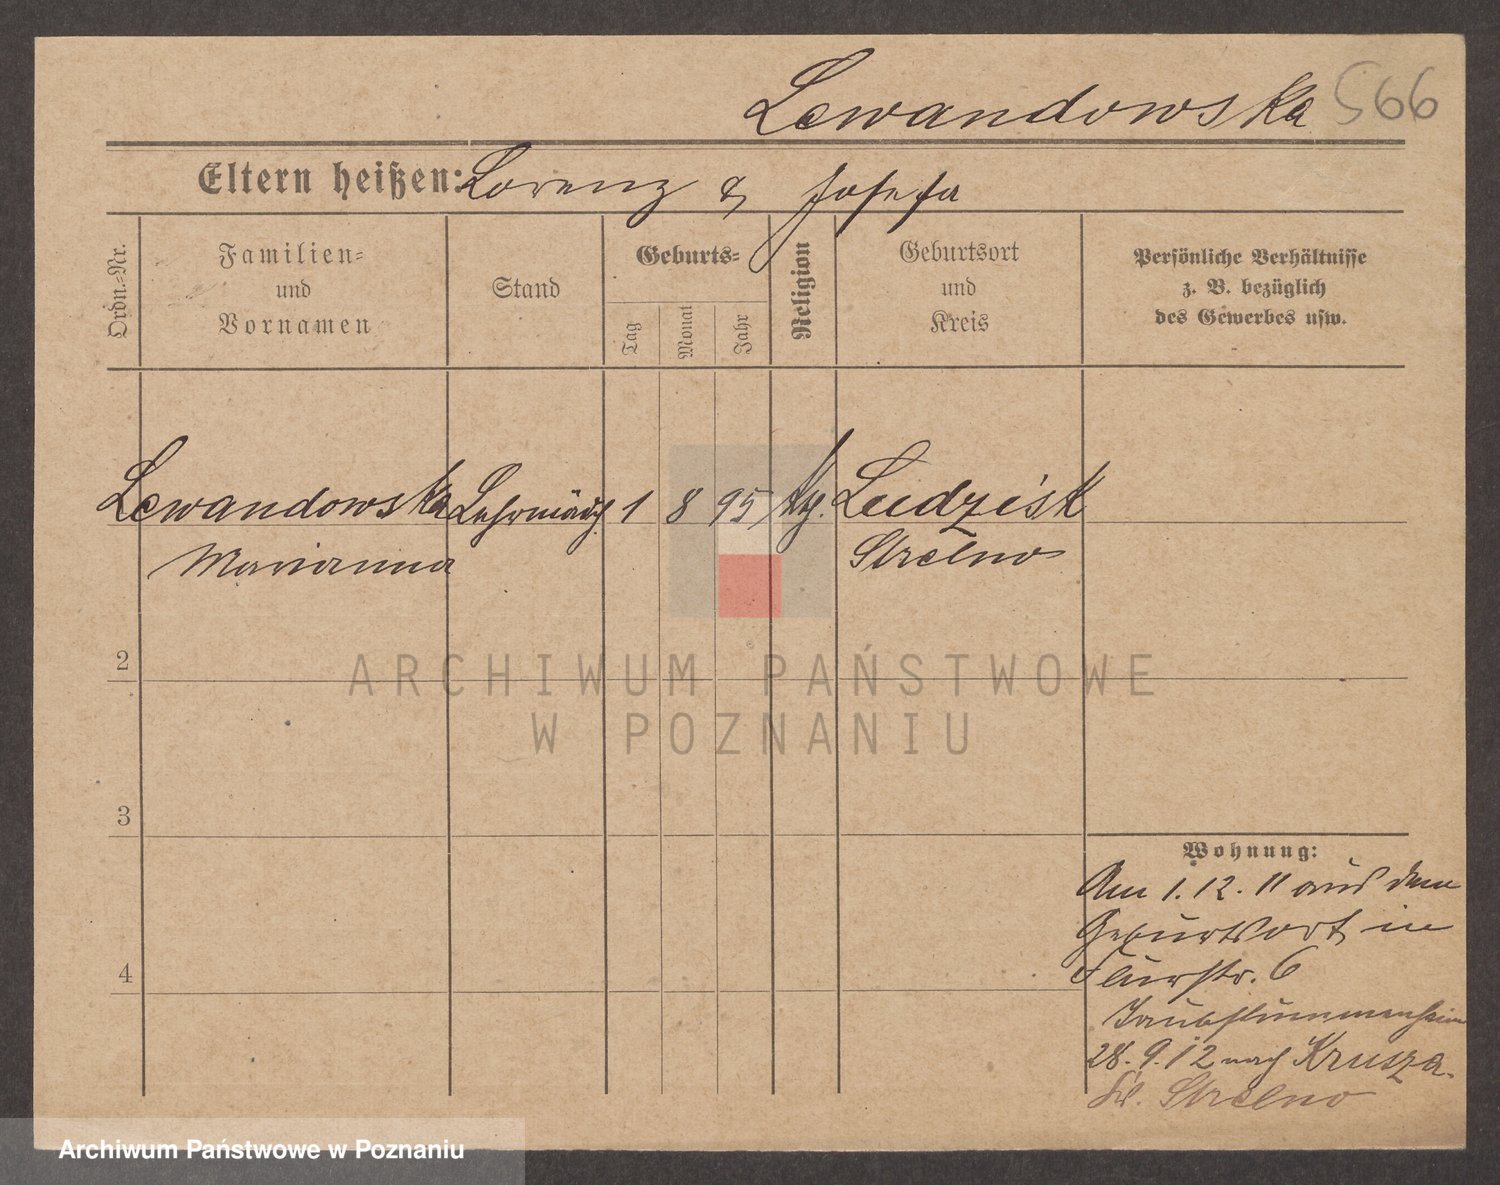 Lewandowska 566
Eltern heißen: Lorenz & Josefa
Ordn.-Nr.
Familien-
und
Vornamen
Stand
Geburts-
Tag
Monat
Jahr
Religion
Geburtsort
und
Kreis
Persönliche Verhältnisse
z. B. bezüglich
des Gewerbes usw.
Lewandowska Lehrmädch 1 8 95 Ludzisk
Marianna Strelno
2
3
4
Wohnung:
Am 1.12.11 aus dem
Geburtsort in
Flurstr. 6
Taubstummenheim
28.9.12 nach Krusza.
Kr. Strelno
ARCHIWUM PAŃSTWOWE
W POZNANIU
Archiwum Państwowe w Poznaniu